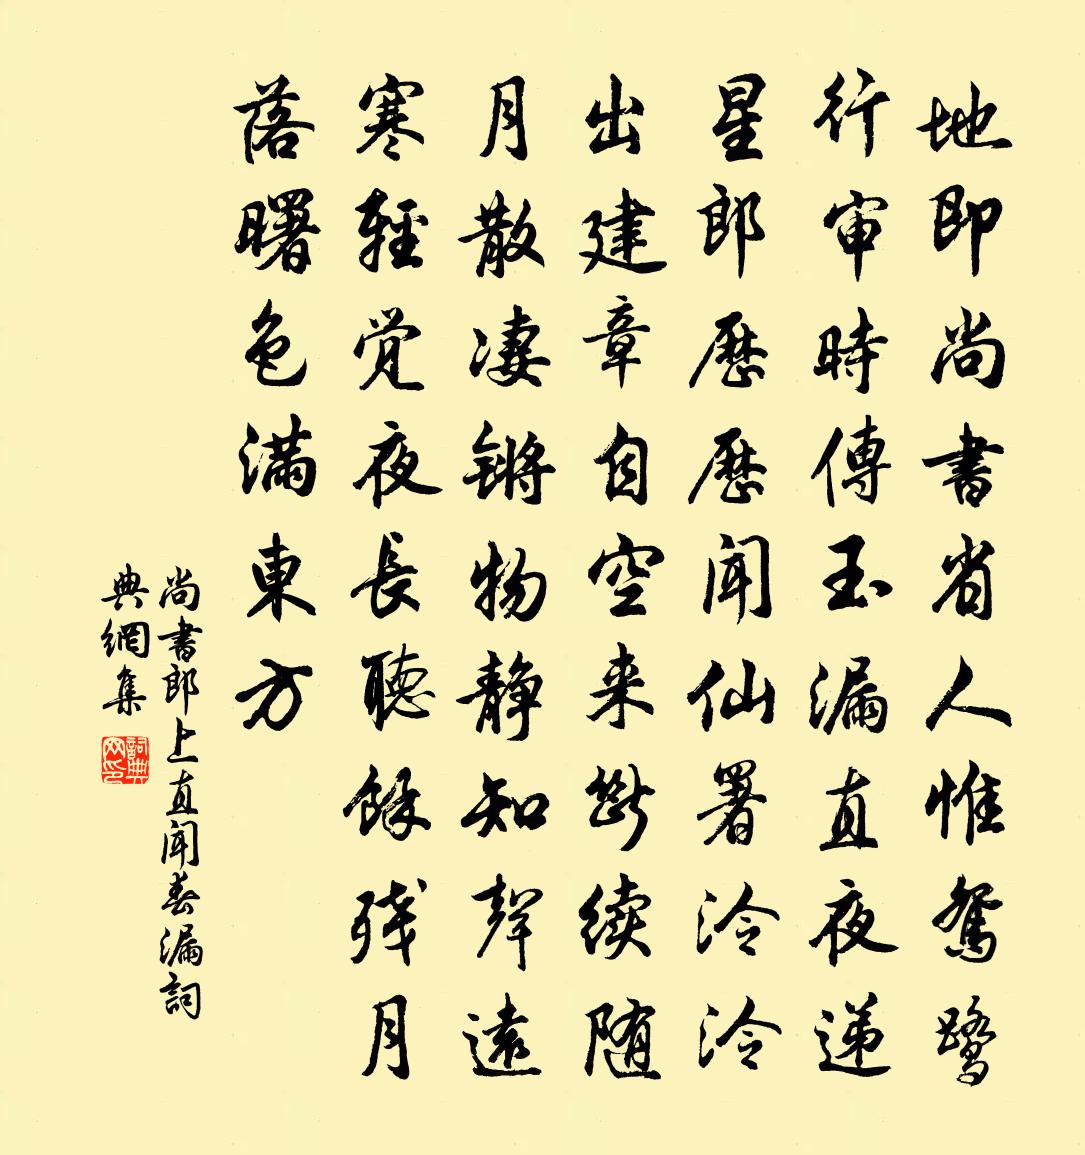 地即尚書省人惟鴛鷺
行审時傳玉漏直夜递
星郎歷歷聞仙署泠泠
出建章自空来斷續随
月散凄锵物静知聲遠
寒輕觉夜長聽餘残月
落曙色满東方
尚書郎上直聞春漏詞
典網集
詞典
网印